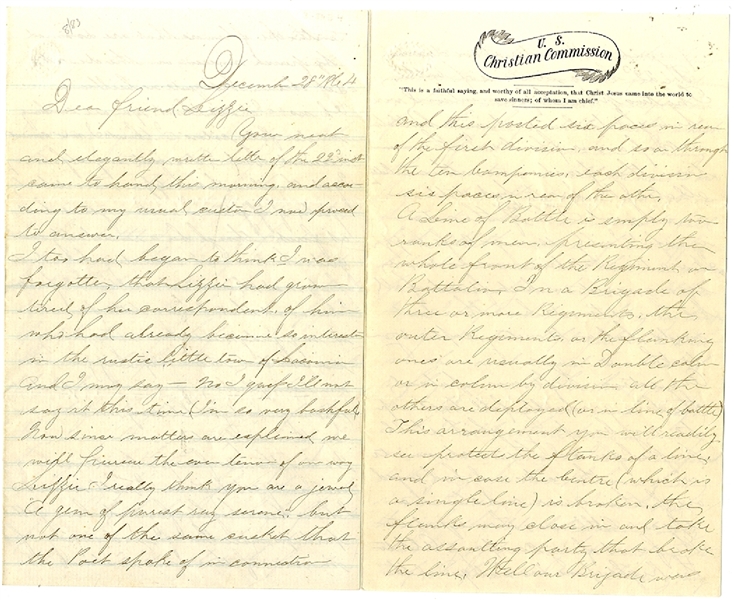 Decemb 28th 1864
Dear friend Lizzie
Your neat
and elegantly written letter of the 22d inst
came to hand this morning, and accor-
ding to my usual custom I now proceed
to answer.
I too had began to think I was
forgotten, that Lizzie had grown
tired of her correspondent, of him
who had already become so interest
in the rustic little town of Laconia
And I may say — No I guess I'll not
say it this time (I'm so very bashful)
Now since matters are explained we
will pursue the even tenor of our way
Lizzie I really think you are a jewel
"A gem of purest ray serene" but
not one of the same casket that
the Poet spoke of in connection
U. S.
Christian Commission
"This is a faithful saying, and worthy of all acceptation, that Christ Jesus came into the world to
save sinners; of whom I am chief."
and this posted six paces in rear
of the first division, and so on through
the ten companies, each division
six paces in rear of the other.
A Line of Battle is simply two
ranks of men, presenting the
whole front of the Regiment or
Battalion. In a Brigade of
three or more Regiments, the
outer Regiments, or the flanking
ones are usually in Double colum
or in colum by division all the
others are deployed (or in line of battle)
This arrangement you will readily
see protects the flanks of a line,
and in case the Centre (which is
a single line) is broken, the
flanks may close in and take
the assaulting party that broke
the line. Well our Brigade was